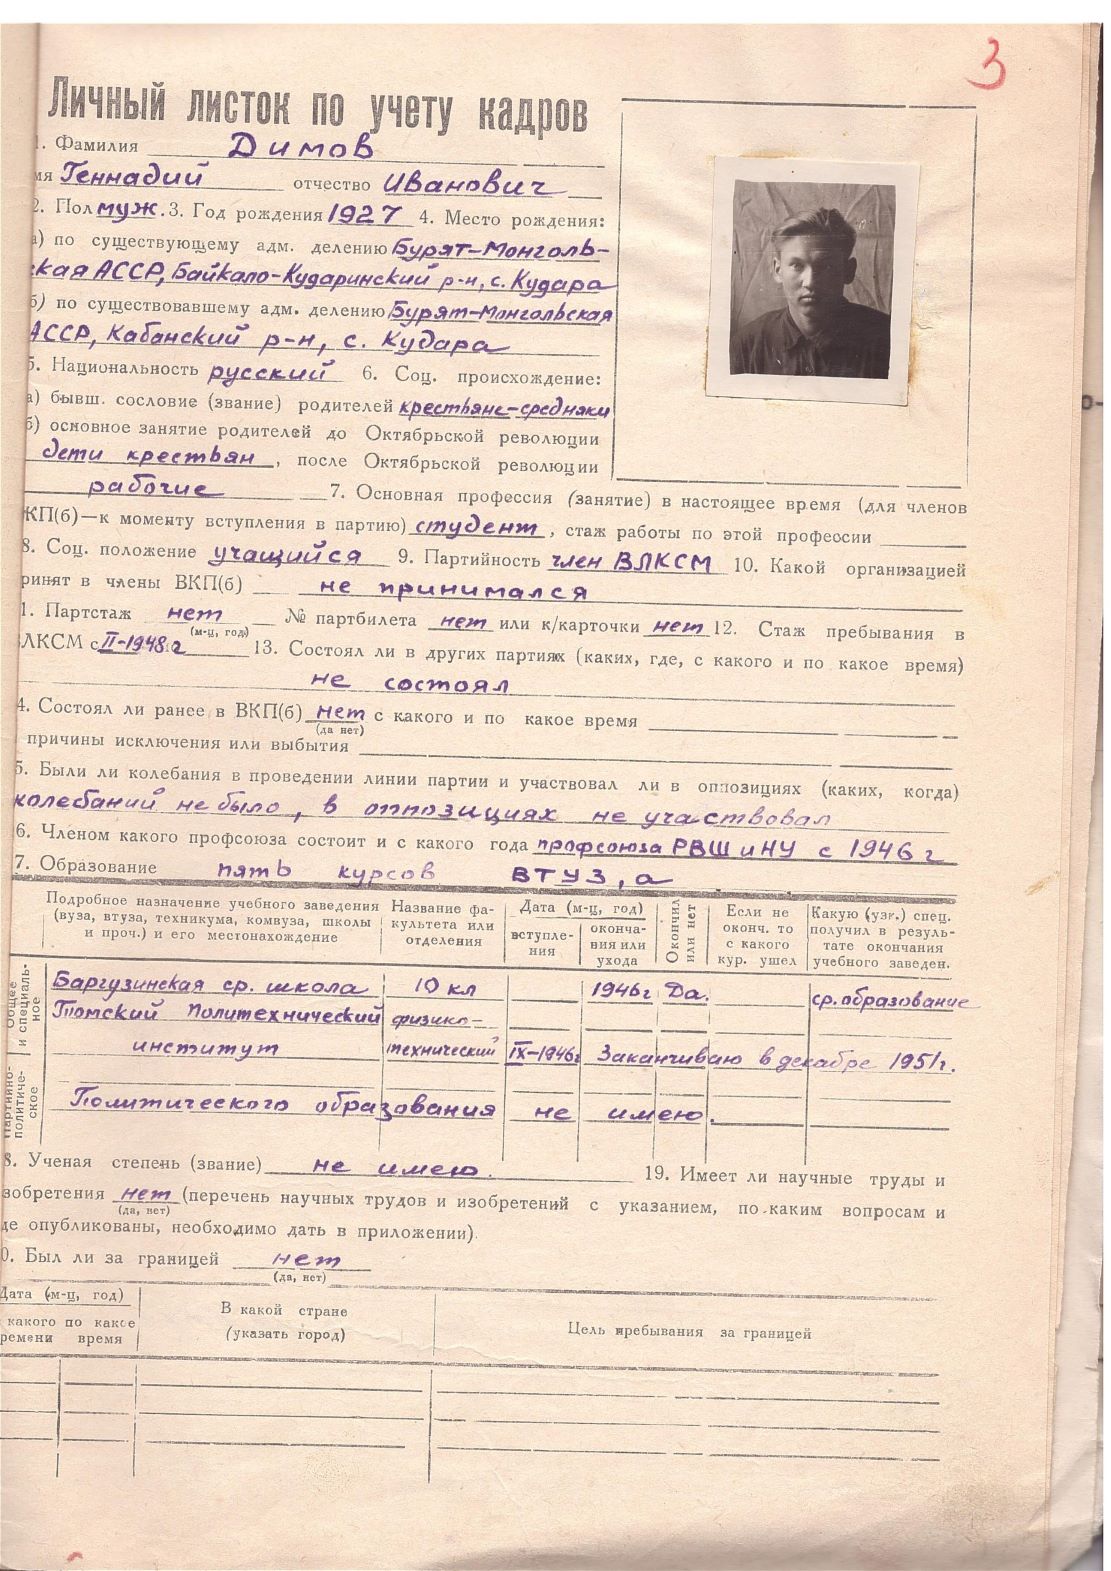 3
Личный листок по учету кадров
1. Фамилия Димов
мя Геннадий отчество Иванович
2. Пол муж. 3. Год рождения 1927 4. Место рождения:
а) по существующему адм. делению Бурят-Монголь-
ская АССР, Байкало-Кударинский р-н, с. Кудара
б) по существовавшему адм. делению Бурят-Монгольская
АССР, Кабанский р-н, с. Кудара
5. Национальность русский 6. Соц. происхождение:
а) бывш. сословие (звание) родителей крестьяне-средняки
б) основное занятие родителей до Октябрьской революции
дети крестьян, после Октябрьской революции
рабочие 7. Основная профессия (занятие) в настоящее время (для членов
КП(б)—к моменту вступления в партию) студент, стаж работы по этой профессии
8. Соц. положение учащийся 9. Партийность член ВЛКСМ 10. Какой организацией
ринят в члены ВКП(б) не принимался
1. Партстаж нет № партбилета нет или к/карточки нет 12. Стаж пребывания в
(м-ц, год)
ЛКСМ с II-1948г 13. Состоял ли в других партиях (каких, где, с какого и по какое время)
не состоял
4. Состоял ли ранее в ВКП(б) нет с какого и по какое время
(да нет)
причины исключения или выбытия
5. Были ли колебания в проведении линии партии и участвовал ли в оппозициях (каких, когда)
колебаний не было, в оппозициях не участвовал
6. Членом какого профсоюза состоит и с какого года профсоюза РВШ и НУ с 1946 г
7. Образование пять курсов ВТУЗ,а
Подробное назначение учебного заведения
(вуза, втуза, техникума, комвуза, школы
и проч.) и его местонахождение
Название фа-
культета или
отделения
Дата (м-ц, год)
вступле-
ния
оконча-
ния или
ухода
Окончил
или нет
Если не
оконч. то
с какого
кур. ушел
Какую (узк.) спец.
получил в резуль-
тате окончания
учебного заведен.
Общее
и специаль-
ное
Баргузинская ср. школа 10 кл 1946г Да. ср. образование
Томский Политехнический физико-
институт технический IX-1946г Заканчиваю в декабре 1951г.
Партийно-
политиче-
ское
Политического образования не имею.
8. Ученая степень (звание) не имею. 19. Имеет ли научные труды и
зобретения нет (перечень научных трудов и изобретений с указанием, по каким вопросам и
(да, нет)
де опубликованы, необходимо дать в приложении).
0. Был ли за границей нет
(да, нет)
Дата (м-ц, год)
какого по какое
ремени время
В какой стране
(указать город)
Цель пребывания за границей